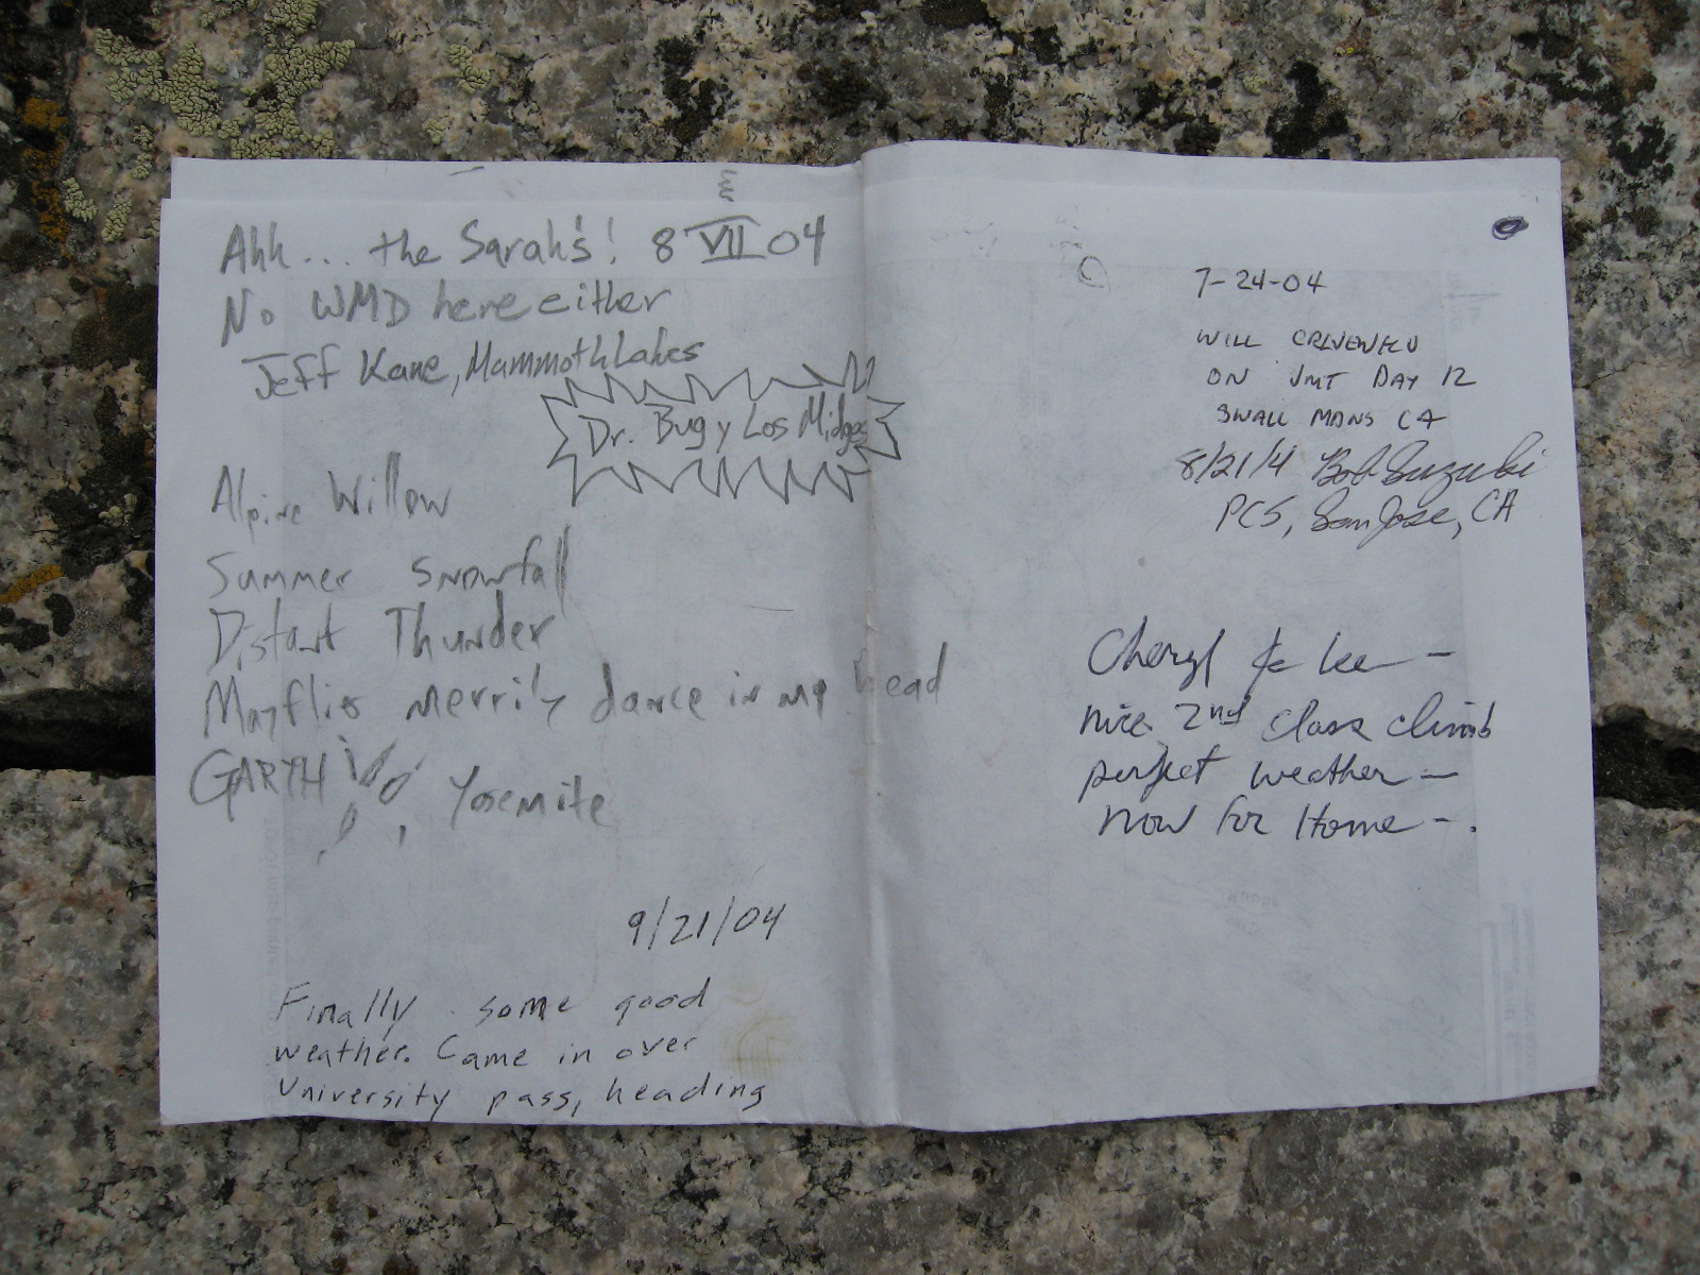 Ahh... the Sarah's! 8 VII 04
No WMD here either
Jeff Kane, Mammoth Lakes
Dr. Bug y Los Midges
Alpine Willow
Summer Snowfall
Distant Thunder
Mayflies merrily dance in my head
GARTH Yosemite
9/21/04
Finally some good
weather. Came in over
University pass, heading
7-24-04
WILL
ON JMT DAY 12
CA
8/21/4 Bob Suzuki
PCS, San Jose, CA
Cheryl & Lee -
nice 2nd class climb
perfect weather -
now for Home - .